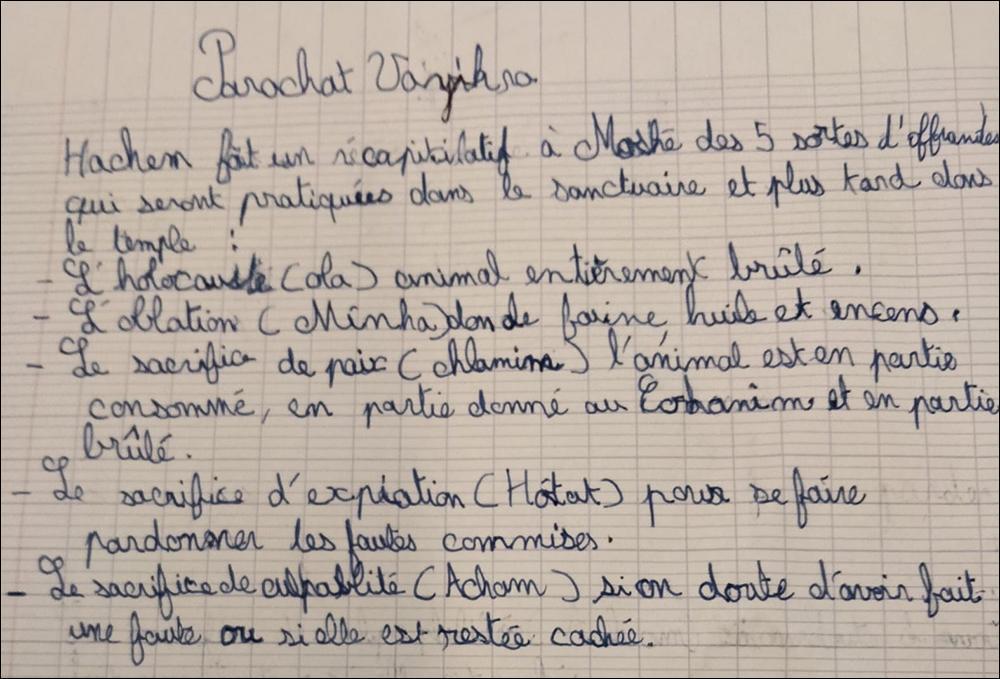 Parachat Vayikra
Hachem fait un récapitulatif à Moshé des 5 sortes d'offrandes
qui seront pratiquées dans le sanctuaire et plus tard dans
le temple :
- L'holocauste (ola) animal entièrement brûlé.
- L'oblation (Minha) don de farine, huile et encens.
- Le sacrifice de paix (chlamim) l'animal est en partie
consommé, en partie donné au Cohanim et en partie
brûlé.
- Le sacrifice d'expiation (Hatat) pour se faire
pardonner les fautes commises.
- Le sacrifice de culpabilité (Acham) si on doute d'avoir fait
une faute ou si elle est restée cachée.